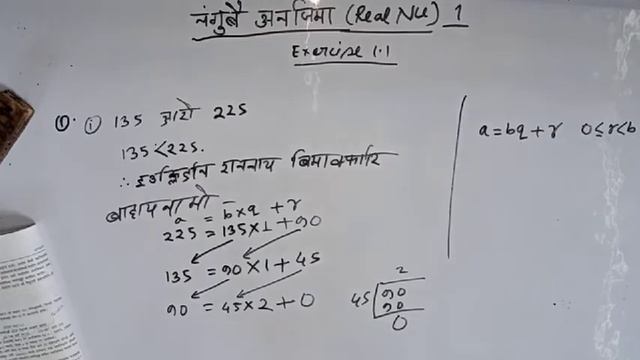 नंगुबै अनजिमा (Real NU) 1
Exercise 1.1
Q. (i) 135 आरो 225
135 < 225.
∴ इउक्लिडनि राननाय बिमा
a = b×q + r
225 = 135×1 + 90
135 = 90×1 + 45
90 = 45×2 + 0
2
45 90
90
0
a = bq + r 0 ≤ r < b